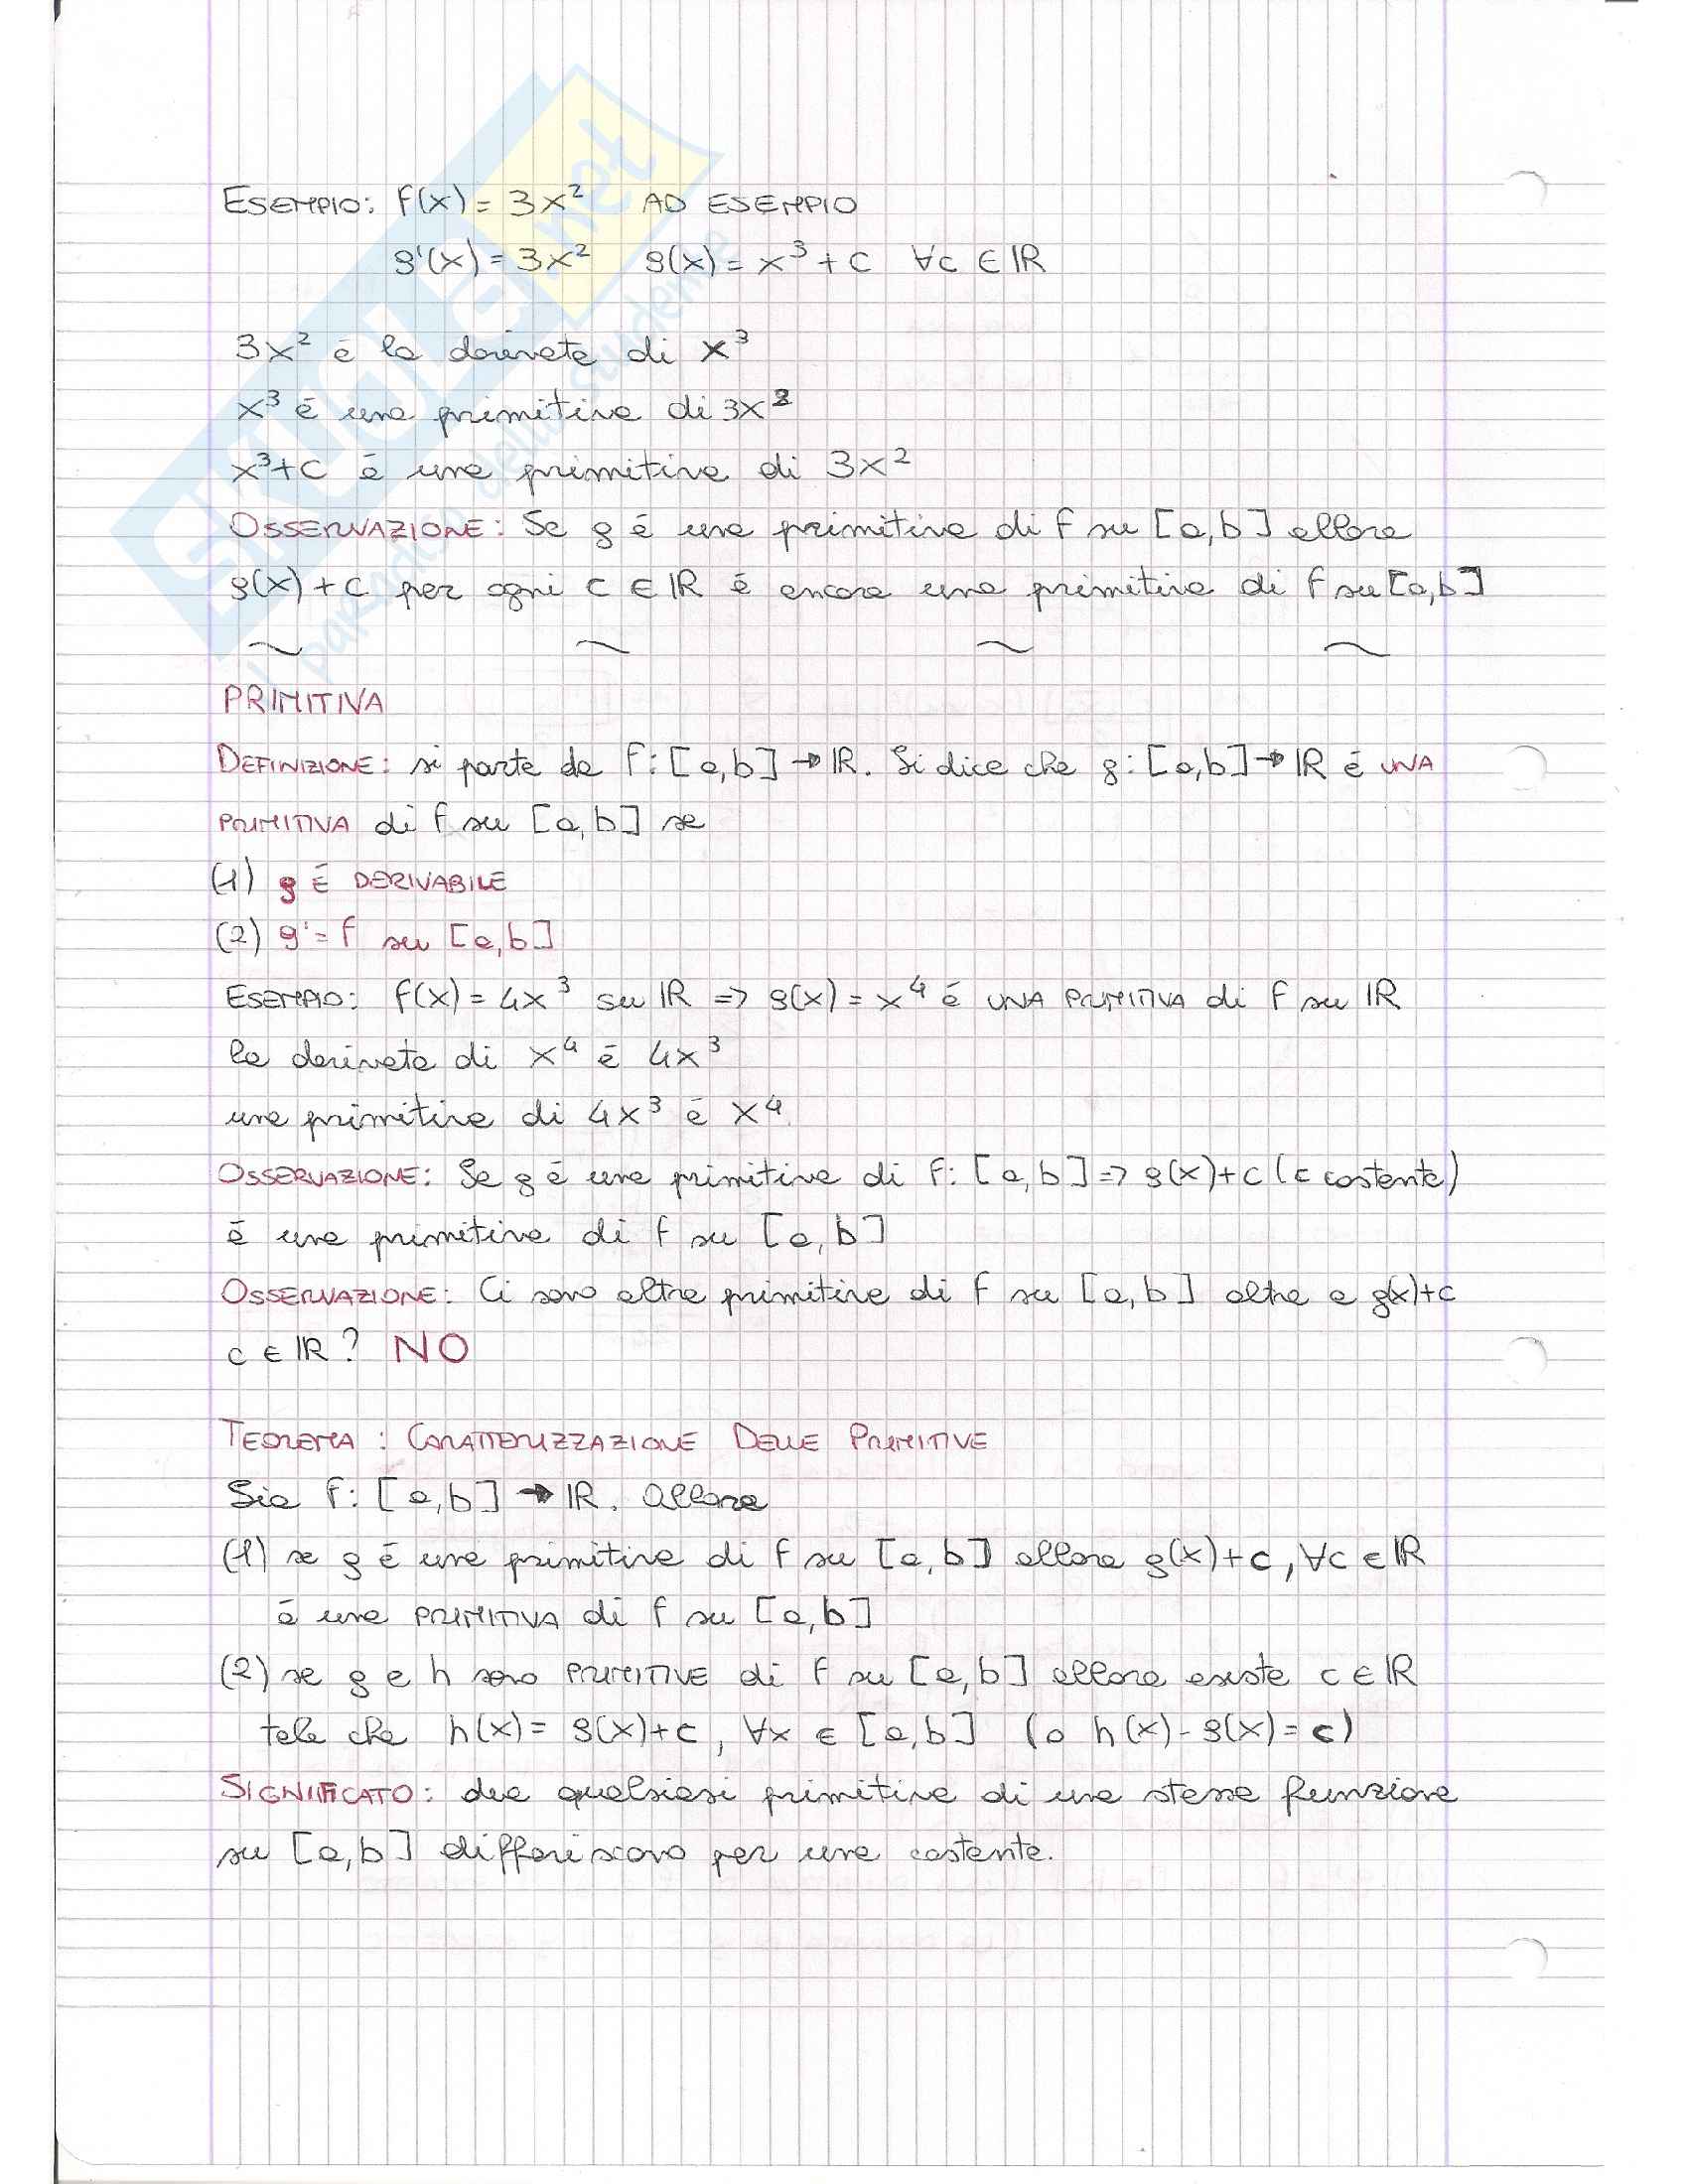 ESEMPIO: f(x) = 3x² AD ESEMPIO
g'(x) = 3x² g(x) = x³ + c ∀c ∈ ℝ
3x² è la derivata di x³
x³ è una primitiva di 3x²
x³+c è una primitiva di 3x²
OSSERVAZIONE: Se g è una primitiva di f su [a,b] allora
g(x) + c per ogni c ∈ ℝ è ancora una primitiva di f su [a,b]
~ ~ ~ ~
PRIMITIVA
DEFINIZIONE: si parte da f: [a,b] → ℝ. Si dice che g: [a,b] → ℝ è UNA
PRIMITIVA di f su [a,b] se
(1) g È DERIVABILE
(2) g' = f su [a,b]
ESEMPIO: f(x) = 4x³ su ℝ => g(x) = x⁴ è UNA PRIMITIVA di f su ℝ
la derivata di x⁴ è 4x³
una primitiva di 4x³ è x⁴
OSSERVAZIONE: Se g è una primitiva di f: [a,b] => g(x)+c (c costante)
è una primitiva di f su [a,b]
OSSERVAZIONE: Ci sono altre primitive di f su [a,b] oltre a g(x)+c
c ∈ ℝ? NO
TEOREMA: CARATTERIZZAZIONE DELLE PRIMITIVE
Sia f: [a,b] → ℝ. Allora
(1) se g è una primitiva di f su [a,b] allora g(x)+c, ∀c ∈ ℝ
è una PRIMITIVA di f su [a,b]
(2) se g e h sono PRIMITIVE di f su [a,b] allora esiste c ∈ ℝ
tale che h(x) = g(x)+c, ∀x ∈ [a,b] (o h(x) - g(x) = c)
SIGNIFICATO: due qualsiasi primitive di una stessa funzione
su [a,b] differiscono per una costante.
SKUOLA.net
il paradiso dello studente